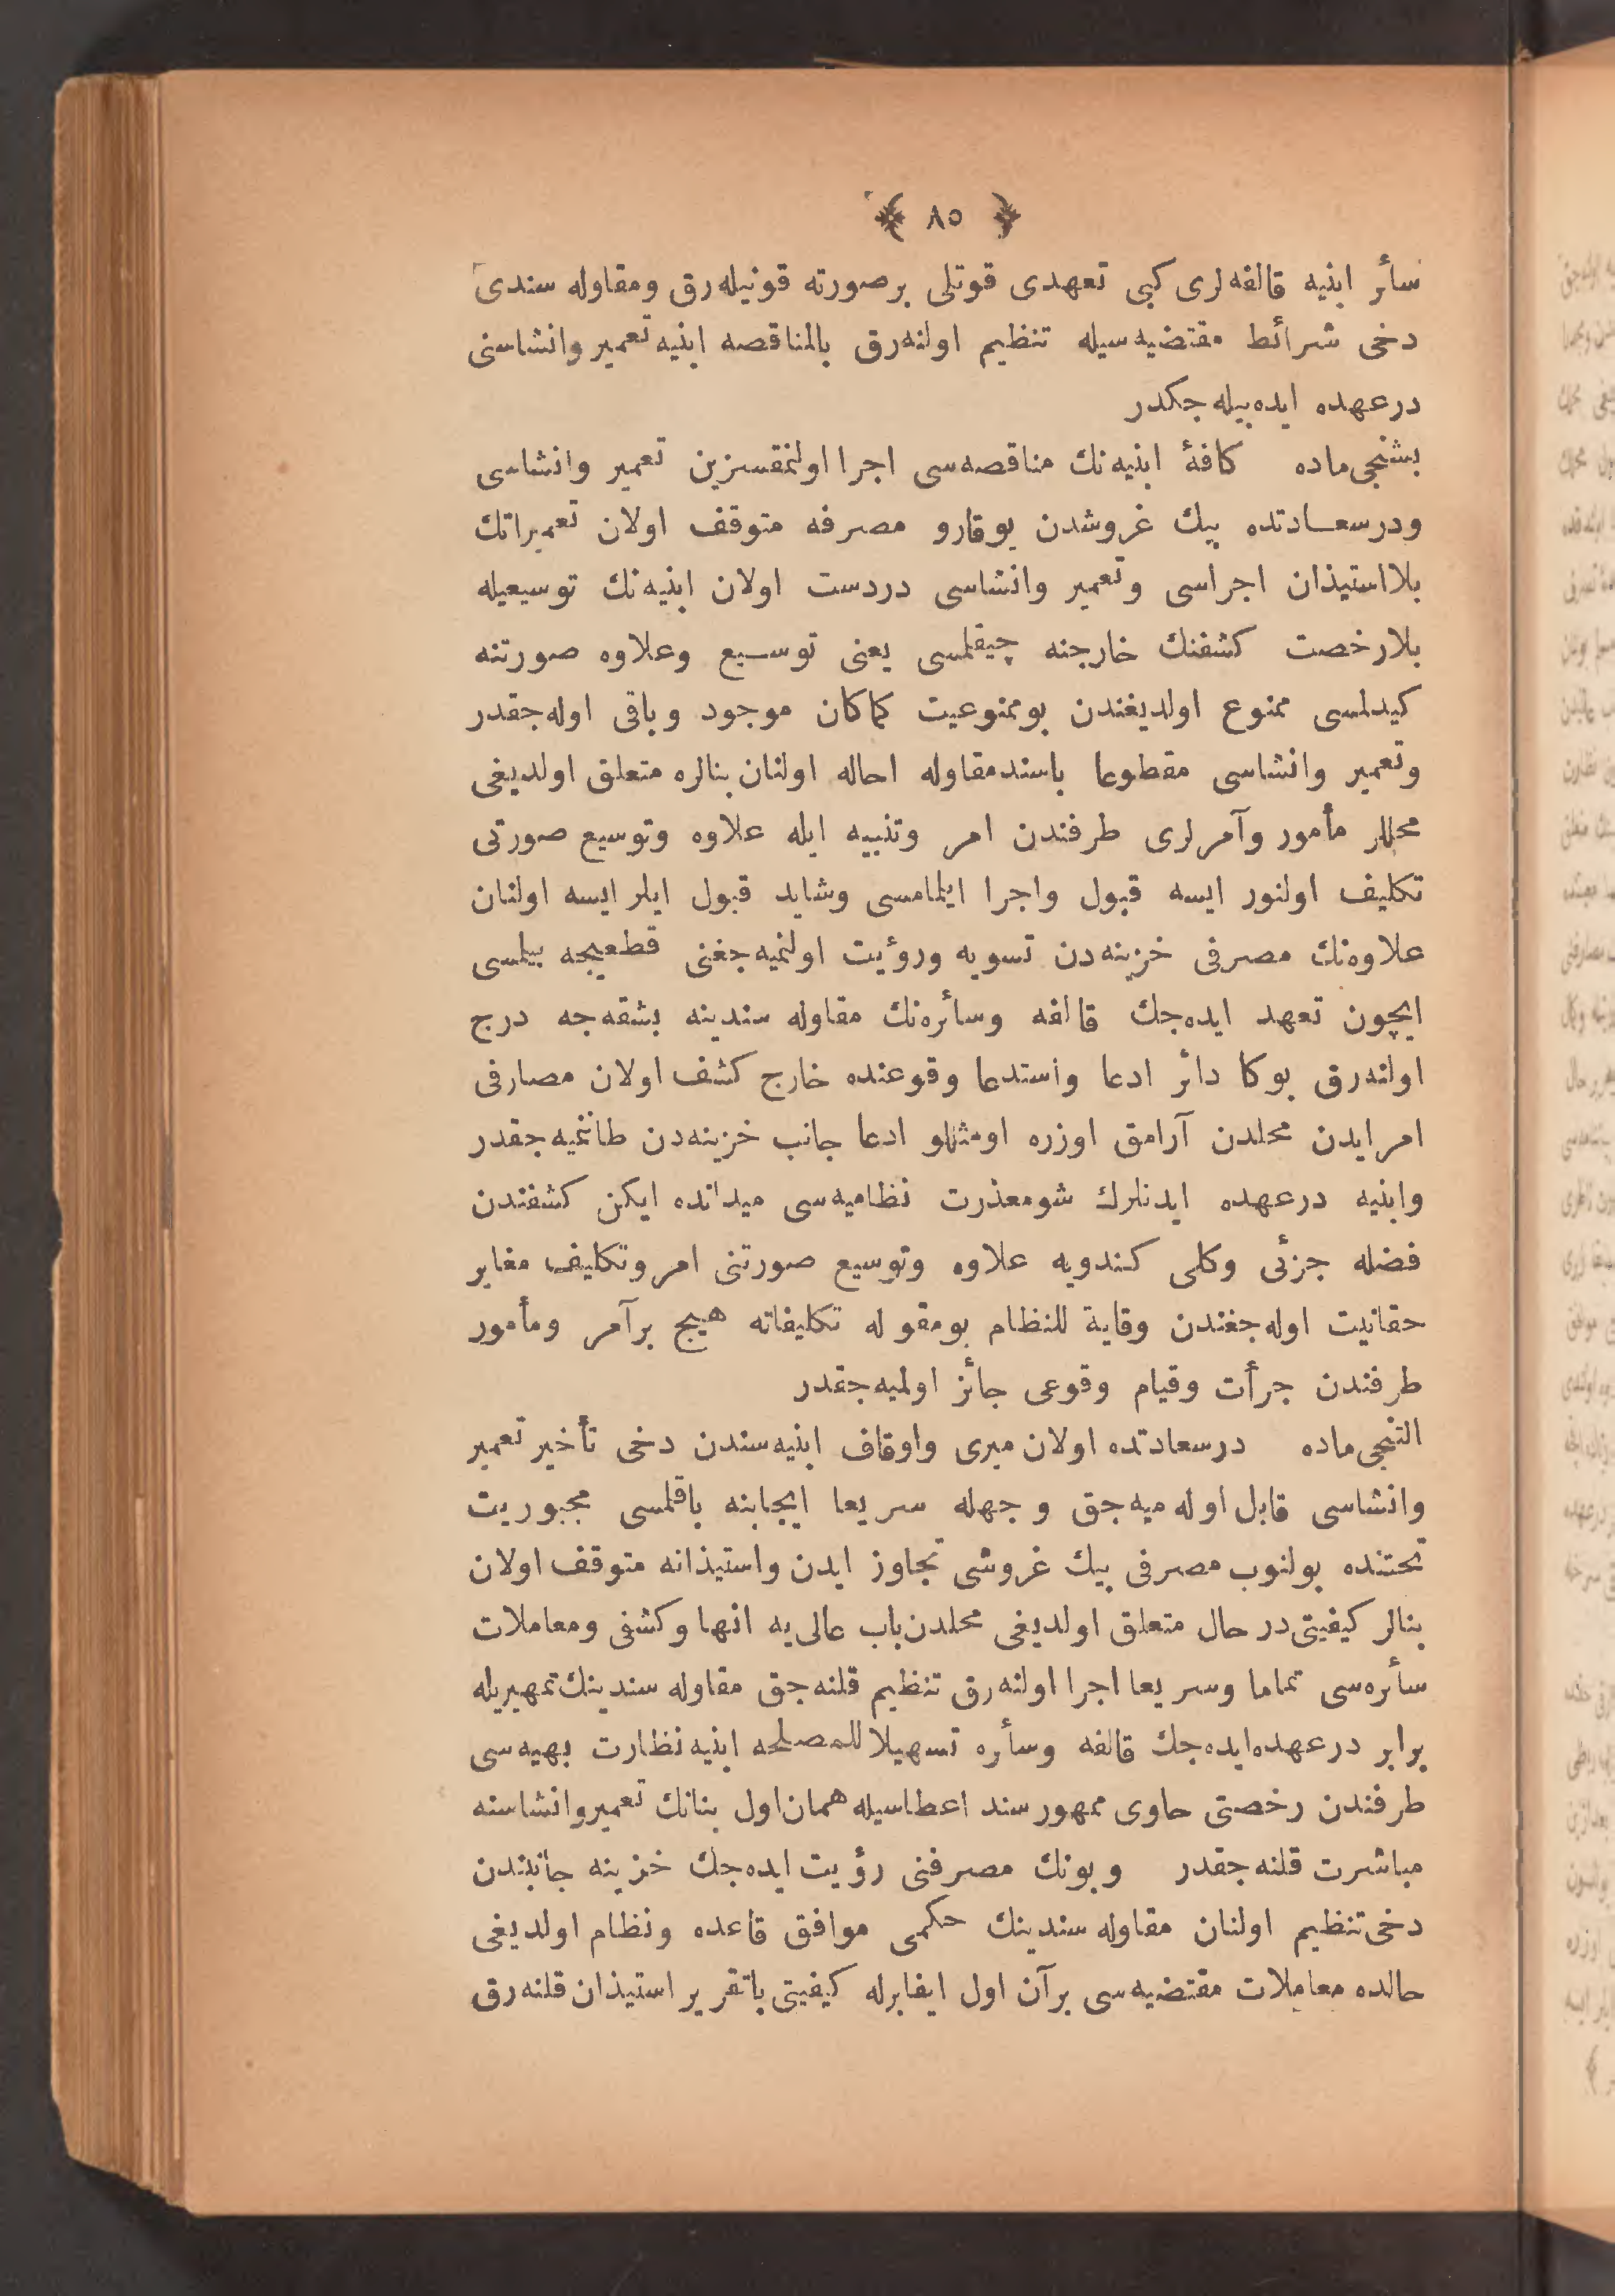 ﴿ ٨٥ ﴾
سأر ابنیه قالفه‌لری کبی تعهدی قوتلی برصورته قونیله‌رق ومقاوله سندی
دخی شرائط مقتضیه‌سیله تنظیم اولنه‌رق بالمناقصه ابنیه تعمیر وانشاسنی
درعهده ایده‌بیله‌جکدر
بشنجی‌ماده کافۀ ابنیه‌نك مناقصه‌سی اجرا اولنمقسزین تعمیر وانشاسی
ودرسعـادتده بیك غروشدن یوقارو مصرفه متوقف اولان تعمیراتك
بلااستیذان اجراسی وتعمیر وانشاسی دردست اولان ابنیه‌نك توسیعیله
بلارخصت کشفنك خارجنه چیقلمسی یعنی توسـیع وعلاوه صورتنه
کیدلمسی ممنوع اولدیغندن بوممنوعیت کماکان موجود وباقی اوله‌جقدر
وتعمیر وانشاسی مقطوعا باسندمقاوله احاله اولنان بنالره متعلق اولدیغی
محللر مأمور وآمرلری طرفندن امر وتنبیه ایله علاوه وتوسیع صورتی
تکلیف اولنور ایسه قبول واجرا ایلمامسی وشاید قبول ایلر ایسه اولنان
علاوه‌نك مصرفی خزینه‌دن تسویه ورؤیت اولنمیه‌جغنی قطعیجه بیلمسی
ایچون تعهد ایده‌جك قالفه وسأره‌نك مقاوله سندینه بشقه‌جه درج
اولنه‌رق بوکا دأر ادعا واستدعا وقوعنده خارج کشف اولان مصارفی
امر ایدن محلدن آرامق اوزره اومثللو ادعا جانب خزینه‌دن طاننمیه‌جقدر
وابنیه درعهده ایدنلرك شومعذرت نظامیه‌سی میدانده ایکن کشفندن
فضله جزئی وکلی کندویه علاوه وتوسیع صورتنی امر وتکلیف مغایر
حقانیت اوله‌جغندن وقایة للنظام بومقوله تکلیفاته هیچ برآمر ومأمور
طرفندن جرأت وقیام وقوعی جأئز اولمیه‌جقدر
التنجی‌ماده درسعادتده اولان میری واوقاف ابنیه‌سندن دخی تأخیر تعمیر
وانشاسی قابل اوله‌میه‌جق وجهله سریعا ایجابنه باقلمسی مجبوریت
تحتنده بولنوب مصرفی بیك غروشی تجاوز ایدن واستیذانه متوقف اولان
بنالر کیفیتی درحال متعلق اولدیغی محلدن باب عالی‌یه انها وکشفی ومعاملات
سأره‌سی تماما وسریعا اجرا اولنه‌رق تنظیم قلنه‌جق مقاوله سندینك تمهیریله
برابر درعهده‌ایده‌جك قالفه وسأره تسهیلا للمصلحه ابنیه نظارت بهیه‌سی
طرفندن رخصتی حاوی ممهور سند اعطاسیله همان‌اول بنانك تعمیروانشاسنه
مباشرت قلنه‌جقدر وبونك مصرفنی رؤیت ایده‌جك خزینه جانبندن
دخی تنظیم اولنان مقاوله سندینك حکمی موافق قاعده ونظام اولدیغی
حالده معاملات مقتضیه‌سی برآن اول ایفابرله کیفیتی باتقریر استیذان قلنه‌رق